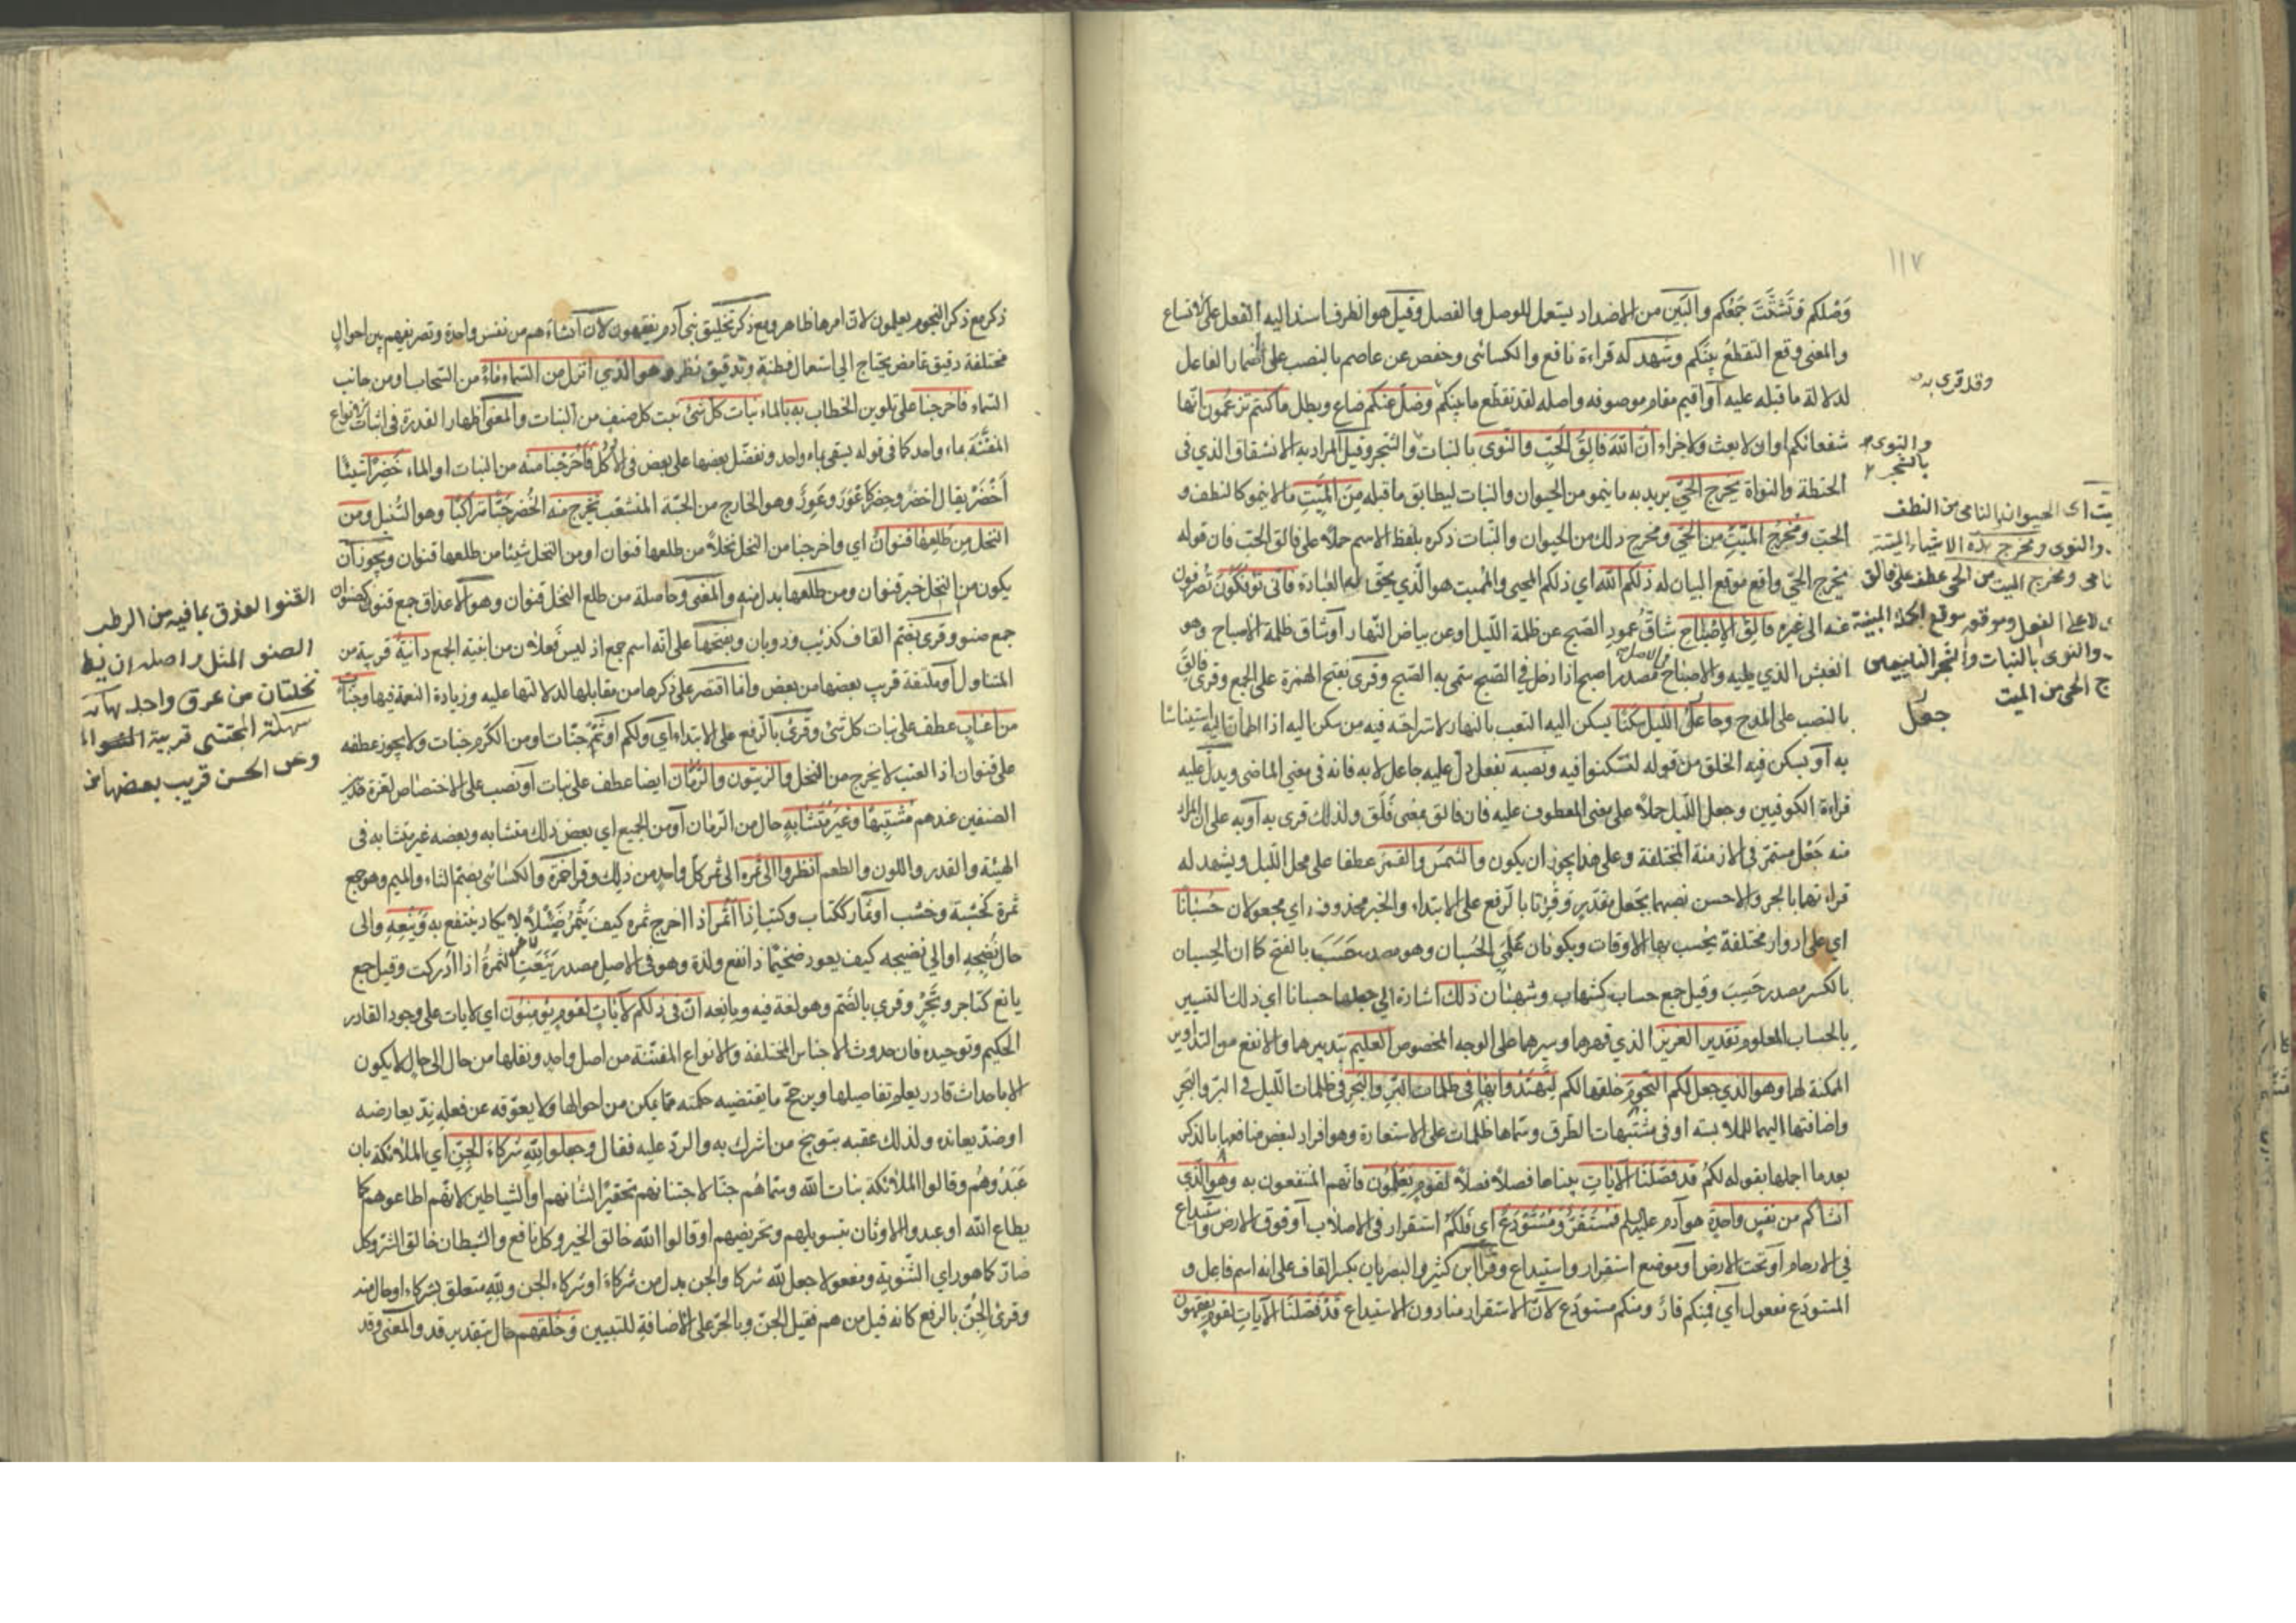 ١١٧
وَصْلكم وتَشتّتَ جَمعُكم والبَين من الاضداد يستعمل للوصل والفصل وقيل هو الظرف اسند اليه الفعل على الاتساع
والمعنى وقع التقطعُ بينكم ويشهد له قراءة نافع والكسائى وحفص عن عاصم بالنصب على اضمار الفاعل
لدلالة ما قبله عليه أو اقيم مقام موصوفه واصله لقد تقطّع ما بينكم وضلّ عنكم ضاع وبطل ما كنتم تزعمون انّها
شفعائكم او ان لا بعث ولا جزاء ان الله فالق الحَبّ والنّوى بالنبات والشجر وقيل المراد به الانشقاق الذي في
الحنطة والنواة يخرج الحيّ يريد به ما ينمو من الحيوان والنبات ليطابق ما قبله من الميّت مالا ينمو كالنطف و
الحبّ ومُخرج الميّت من الحيّ ومخرج ذلك من الحيوان والنّبات ذكره بلفظ الاسم حملاً على فالق الحبّ فان قوله
يخرج الحيّ واقع موقع البيان له ذلكم الله اي ذلكم المحيي والمميت هو الّذي يحقّ له العبادة فانّى تؤفكون تُصرفون
عنه الى غيره فالق الاصباح شاقّ عمود الصّبح عن ظلمة اللّيل او عن بياض النّهار أو شاق ظلمة الاصباح وهو
الغبش الذي يليه والاصباح في الاصل مصدر اصبح اذا دخل في الصّبح سمّي به الصّبح وقرئ بفتح الهمزة على الجمع وقرئ فالقَ
بالنصب على المدح وجاعلُ اللّيل سَكَنًا يسكن اليه التعب بالنهار لاستراحته فيه من سكن اليه اذا اطمأنّ اليه استيناسًا
به أو يسكن فيه الخلق من قوله لتسكنوا فيه ونصبه بفعل دلّ عليه جاعل لا به فانه في معنى الماضى ويدلّ عليه
قراءة الكوفيين وجعل اللّيل حملاً على معنى المعطوف عليه فان فالق بمعنى فَلَقَ ولذلك قرئ به أو به على ان المراد
منه جَعْل مستمرّ في الازمنة المختلفة وعلى هذا يجوز ان يكون والشمس والقمر عطفا على محل اللّيل ويشهد له
قراءتهما بالجر والاحسن نصبهما بجعل مقدّر وقرئتا بالرفع على الابتداء والخبر محذوف اي مجعولان حسبانًا
اي على ادوار مختلفة يُحسب بهما الاوقات ويكونان عَلَمَي الحُسبان وهو مصدر حَسَبَ بالفتح كما ان الحِسبان
بالكسر مصدر حَسِبَ وقيل جمع حساب كشهاب وشهبان ذلك اشارة الى جعلهما حسبانا اي ذلك التسيير
بالحساب المعلوم تقدير العزيز الذي قهرهما وسيرهما على الوجه المخصوص العليم بتدبيرهما والانفع من التداوير
الممكنة لهما وهو الذي جعل لكم النّجوم خلقها لكم لتهتدوا بها في ظلمات البرّ والبحر في ظلمات اللّيل في البرّ والبحر
واضافتها اليهما للملابسة او في مشتبهات الطرق وسمّاها ظلمات على الاستعارة وهو افراد لبعض منافعها بالذكر
بعد ما اجملها بقوله لكم قد فصّلنا الآيات بيناها فصلاً فصلاً لقوم يعلمون فانّهم المنتفعون به وهو الّذي
انشأكم من نفس واحدة هو آدم عليه السلم فمستقرّ ومستودع اي فلكم استقرار في الاصلاب أو فوق الارض واستيداع
في الارحام أو تحت الارض أو موضع استقرار واستيداع وقرأ ابن كثير والبصريان بكسر القاف على انه اسم فاعل و
المستودَع مفعول اي فمنكم قارّ ومنكم مستودَع لانّ الاستقرار منا دون الاستيداع قد فصّلنا الآيات لقوم يفقهون
وقد قرئ به
والنوى
بالشجر
يت اى الحيوان النامى من النطف
والنوى ومخرج هذه الاشياء الميتة
نامى ومخرج الميت من الحي عطف على فالق
لا على الفعل وموقعه موقع الجملة المبينة
والنوى بالنبات والشجر الناميين من
ج الحى من الميت
جعل
ذكر مع ذكر النجوم يعلمون لان امرها ظاهر ومع ذكر تخليق بني آدم يفقهون لان انشاءهم من نفس واحدة وتصريفهم بين احوال
مختلفة دقيق غامض يحتاج الى استعمال فطنة وتدقيق نظر وهو الذي انزل من السّماء ماءً من السّحاب او من جانب
السّماء فاخرجنا على تلوين الخطاب به بالماء نبات كلّ شئ نبت كل صنف من النبات والمعنى اظهار القدرة في انبات الانواع
المفنّنة بماء واحد كما في قوله يسقى بماء واحد ونفضّل بعضها على بعض في الاُكُل فاخرجنا منه من النبات او الماء خَضِرًا شيئًا
أخضَرَ يقال اخضر وخضِر كاَعْوَرَ وعَوِرٌ وهو الخارج من الحبّة المتشعّب نخرج منه من الخَضر حَبًّا متراكبًا وهو السُّنبل ومن
النخل من طلعها قنوانٌ اي واخرجنا من النخل نخلاً من طلعها قنوان او من النخل شيئًا من طلعها قنوان ويجوز ان
يكون من النخل خبر قنوان ومن طلعها بدل منه والمعنى وحاصلة من طلع النخل قنوان وهو الاعذاق جمع قنو كصنوان
جمع صنو وقرئ بضم القاف كذئب وذوبان وبفتحها على انّه اسم جمع اذ ليس فَعلان من ابنية الجمع دانيةٌ قريبة من
المتناول أو ملتفّة قريب بعضها من بعض وانما اقتصر على ذكرها من مقابلها لدلالتها عليه وزيادة النعمة فيها وجنّات
من اعناب عطف على نبات كل شئ وقرئ بالرفع على الابتداء اي ولكم او ثَمّ جنّات او من الكَرْم جنات ولا يجوز عطفه
على قنوان اذ العنب لا يخرج من النخل والزيتون والرّمّان ايضا عطف على نبات أو نصب على الاختصاص لعزة هذين
الصنفين عندهم مشتبهًا وغير متشابه حال من الرّمّان أو من الجميع اي بعض ذلك متشابه وبعضه غير متشابه في
الهيئة والقدر واللون والطعم انظروا الى ثمره الى ثمر كلّ واحد من ذلك وقرأ حمزة والكسائى بضم الثاء والميم وهو جمع
ثمرة كخشبة وخشب أو ثمار ككتاب وكتب اذا أثمر اذا اخرج ثمره كيف يُثمرُ ضئيلاً لا يكاد ينتفع به وينعه والى
حال نُضجه او الى نضيجه كيف يعود ضخيمًا ذا نفع ولذة وهو في الاصل مصدر يَنَعَتِ الثمرة اذا ادركت وقيل جمع
يانع كتاجر وتَجْر وقرئ بالضم وهو لغة فيه ويانعه انّ في ذلكم لآيات لقوم يؤمنون اي لايات على وجود القادر
الحكيم وتوحيده فان حدوث الاجناس المختلفة والانواع المفنّنة من اصل واحد ونقلها من حال الى حال لا يكون
الا باحداث قادر يعلم تفاصيلها ويرجّح ما يقتضيه حكمته ممّا يمكن من احوالها ولا يعوّقه عن فعله نِدّ يعارضه
او ضدّ يعانده ولذلك عقبه بتوبيخ من اشرك به والردّ عليه فقال وجعلوا لله شركاء الجنّ اي الملائكة بان
عَبَدُوهُم وقالوا الملائكة بنات الله وسمّاهُم جنًّا لاجتنانهم تحقيرًا لشانهم او الشياطين لانّهم اطاعوهم كما
يطاع الله او عبدوا الاوثان بتسويلهم وتحريضهم او قالوا الله خالق الخير وكل نافع والشيطان خالق الشر وكل
ضارّ كما هو راي الثّنوية ومفعولا جعل لله شركا والجن بدل من شركاء او شركاء الجن ولله متعلق بشركاء او حال منه
وقرئ الجنّ بالرفع كانه قيل من هم فقيل الجنّ وبالجرّ على الاضافة للتبيين وخلقهم حال بتقدير قد والمعنى وقد
القنو العذق بما فيه من الرطب
الصنو المثل واصله ان يط
نخلتان من عرق واحد
سهلة المجتنى قريبة
وعن الحسن قريب بعضها